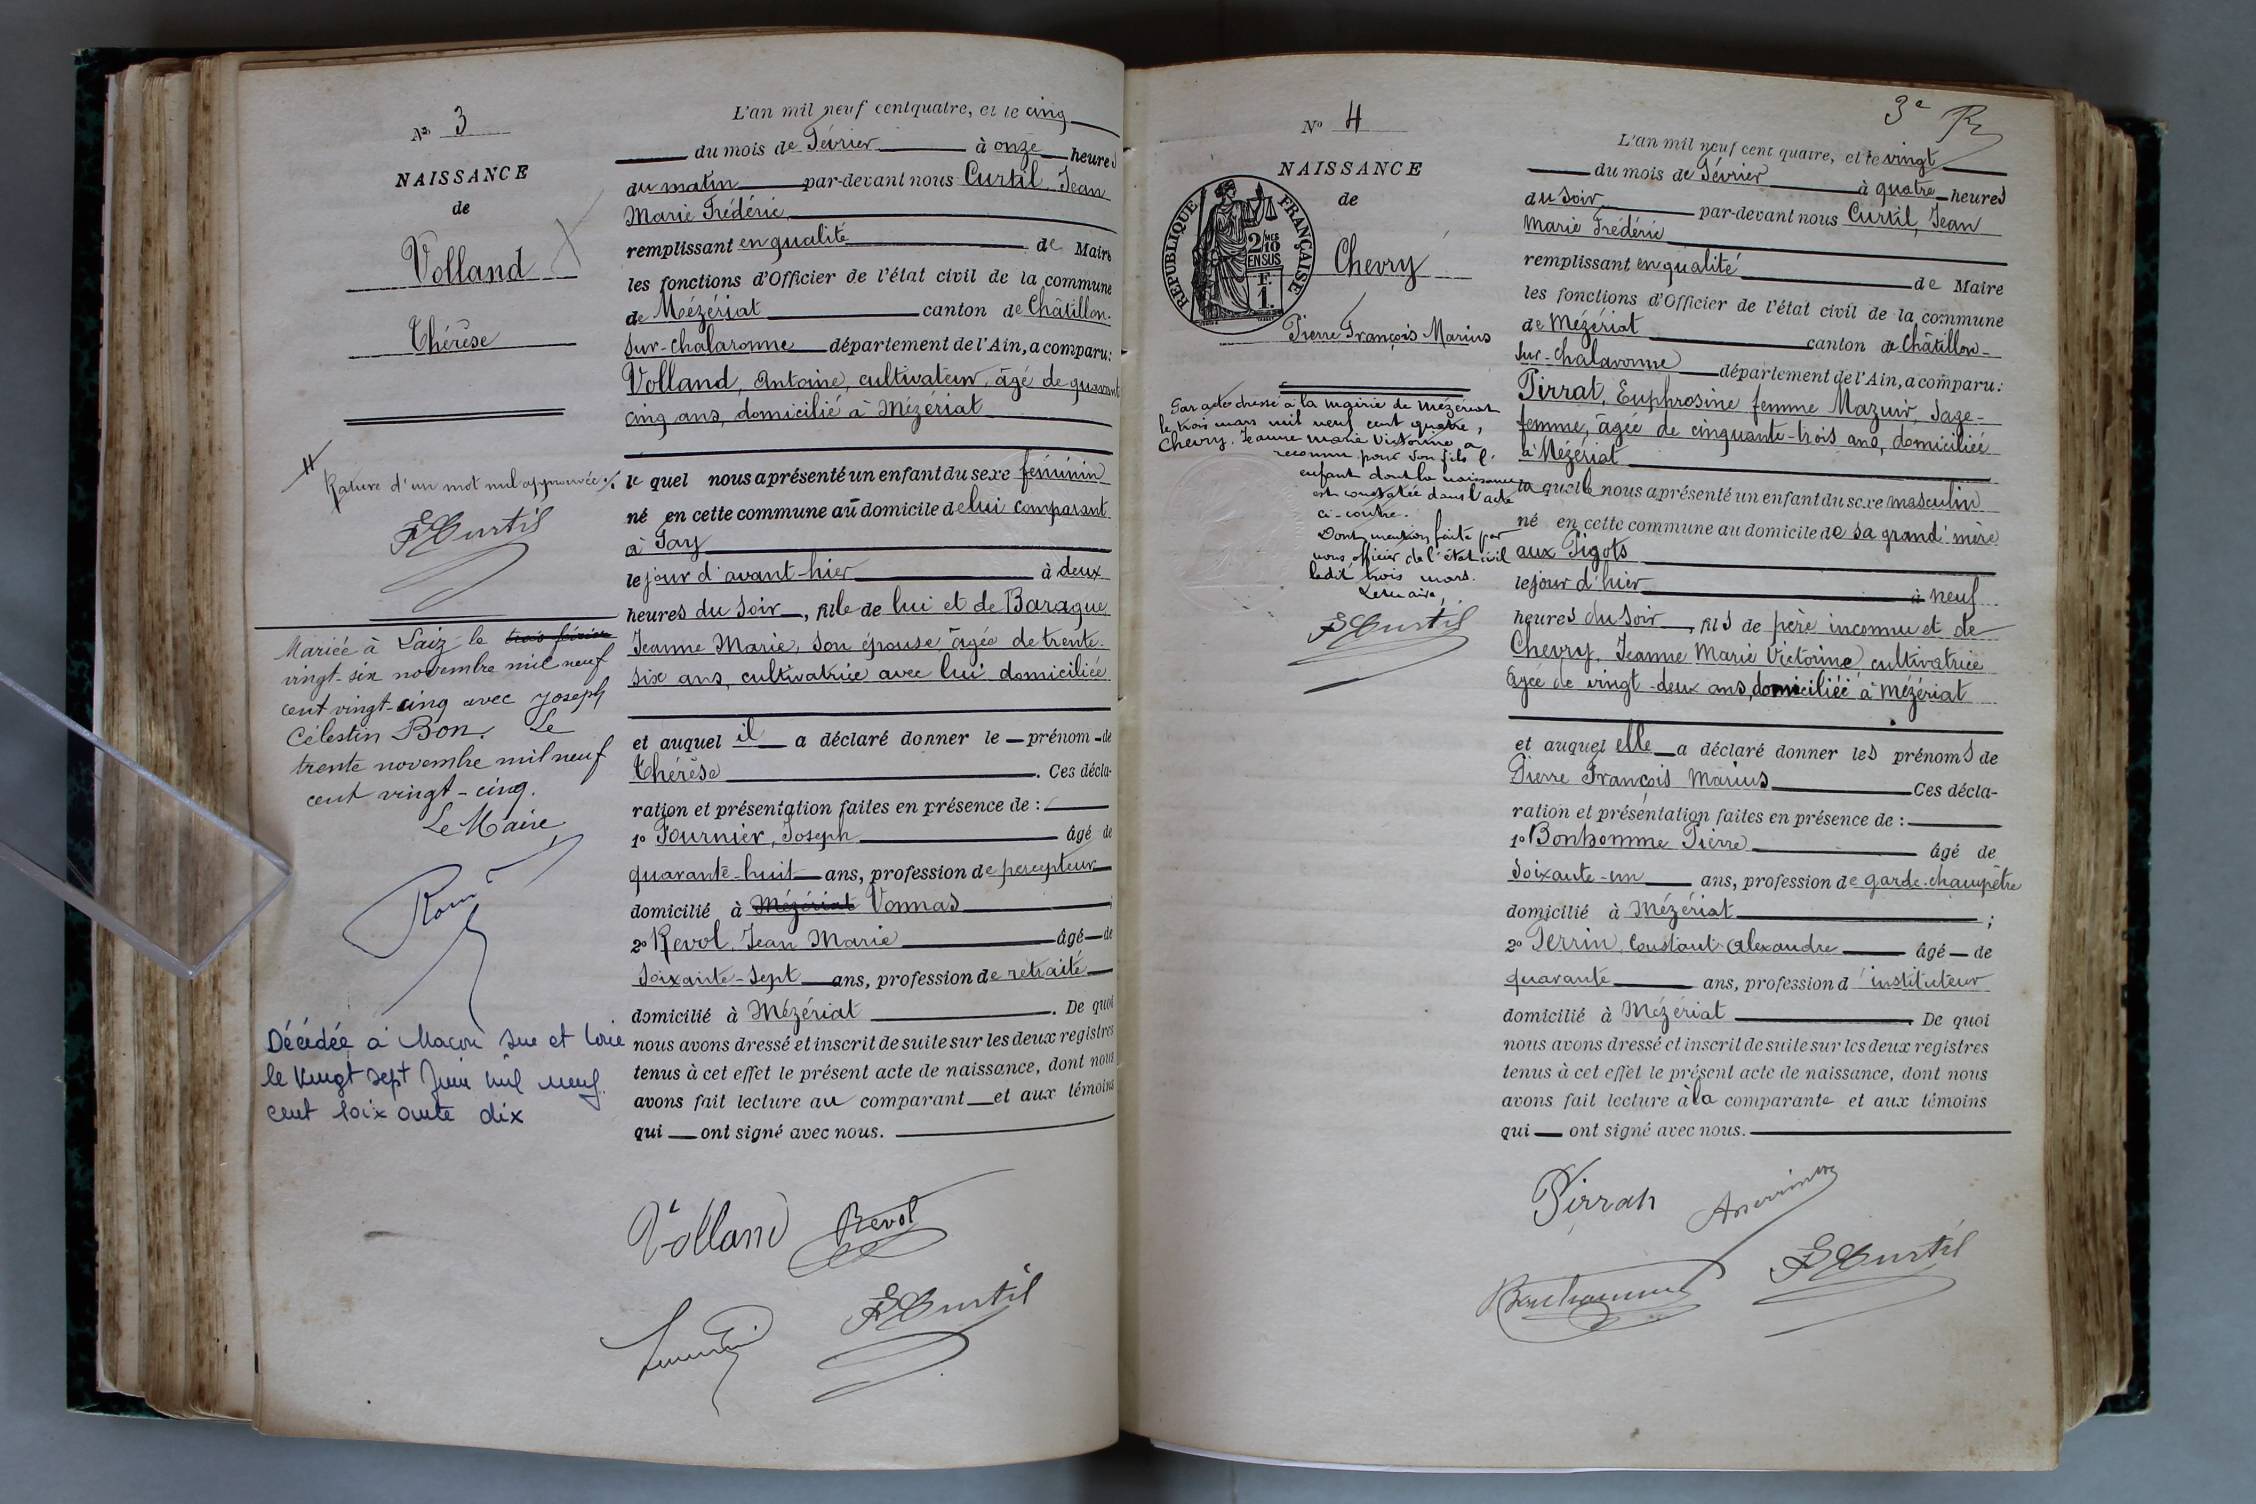 Nº 3
NAISSANCE
de
Volland
Thérèse
Rature d'un mot nul approuvée ./.
FCurtil
Mariée à Laiz le trois février
vingt-six novembre mil neuf
cent vingt-cinq avec Joseph
Célestin Bon. Le
trente novembre mil neuf
cent vingt-cinq.
Le Maire
Décédée à Macon Sne et Loire
le vingt sept Juin mil neuf
cent soixante dix
L'an mil neuf cent quatre, et le cinq
du mois de Février à onze heures
du matin par-devant nous Curtil Jean
Marie Frédéric
remplissant en qualité de Maire
les fonctions d'Officier de l'état civil de la commune
de Mézériat canton de Châtillon-
sur-chalaronne département de l'Ain, a comparu:
Volland, Antoine, cultivateur, âgé de quarante
cinq ans, domicilié à Mézériat
le quel nous a présenté un enfant du sexe féminin
né en cette commune au domicile de lui comparant
à Jay
le jour d'avant-hier à deux
heures du soir, fille de lui et de Barague
Jeanne Marie, son épouse, âgée de trente-
six ans, cultivatrice avec lui domiciliée
et auquel il a déclaré donner le prénom de
Thérèse. Ces décla-
ration et présentation faites en présence de :
1º Fournier, Joseph âgé de
quarante-huit ans, profession de percepteur
domicilié à Mézériat Vonnas ;
2º Revol, Jean Marie âgé de
soixante-sept ans, profession de retraité
domicilié à Mézériat. De quoi
nous avons dressé et inscrit de suite sur les deux registres
tenus à cet effet le présent acte de naissance, dont nous
avons fait lecture au comparant et aux témoins
qui ont signé avec nous.
Volland Revol
FCurtil
3e
Nº 4
NAISSANCE
de
REPUBLIQUE FRANÇAISE
2/10 MES
EN SUS
F.
1.
Chevry
Pierre François Marius
Par acte dressé à la mairie de Mézériat
le trois mars mil neuf cent quatre,
Chevry, Jeanne Marie Victorine, a
reconnu pour son fils l'
enfant dont la naissance
est constatée dans l'acte
ci-contre.
Dont mention faite par
nous officier de l'état civil
ledit trois mars.
Le maire,
FCurtil
L'an mil neuf cent quatre, et le vingt
du mois de Février à quatre heures
du soir par-devant nous Curtil, Jean
Marie Frédéric
remplissant en qualité de Maire
les fonctions d'Officier de l'état civil de la commune
de Mézériat canton de Châtillon-
sur-chalaronne département de l'Ain, a comparu:
Pirrat, Euphrosine femme Mazuir, sage-
femme, âgée de cinquante-trois ans, domiciliée
à Mézériat
la quelle nous a présenté un enfant du sexe masculin
né en cette commune au domicile de sa grand'mère
aux Pigots
le jour d'hier à neuf
heures du soir, fils de père inconnu et de
Chevry, Jeanne Marie Victorine, cultivatrice
âgée de vingt-deux ans, domiciliée à Mézériat
et auquel elle a déclaré donner les prénoms de
Pierre François Marius Ces décla-
ration et présentation faites en présence de :
1º Bonhomme Pierre âgé de
soixante-un ans, profession de garde-champêtre
domicilié à Mézériat ;
2º Perrin, Constant Alexandre âgé de
quarante ans, profession d'instituteur
domicilié à Mézériat. De quoi
nous avons dressé et inscrit de suite sur les deux registres
tenus à cet effet le présent acte de naissance, dont nous
avons fait lecture à la comparante et aux témoins
qui ont signé avec nous.
Pirrat
Bonhomme FCurtil